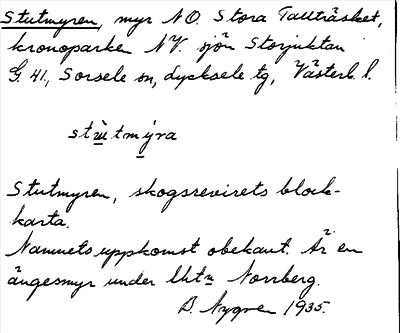 Stutmyren, myr N O. Stora Tallträsket,
kronoparken N V. sjön Storjuktan
G. 41., Sorsele sn, Lycksele tg, Västerb. l.
stùtmýra
Stutmyren, skogsrevirets block-
karta.
Namnets uppkomst obekant. Är en
ängesmyr under Norrberg.
B. Nygren 1935.